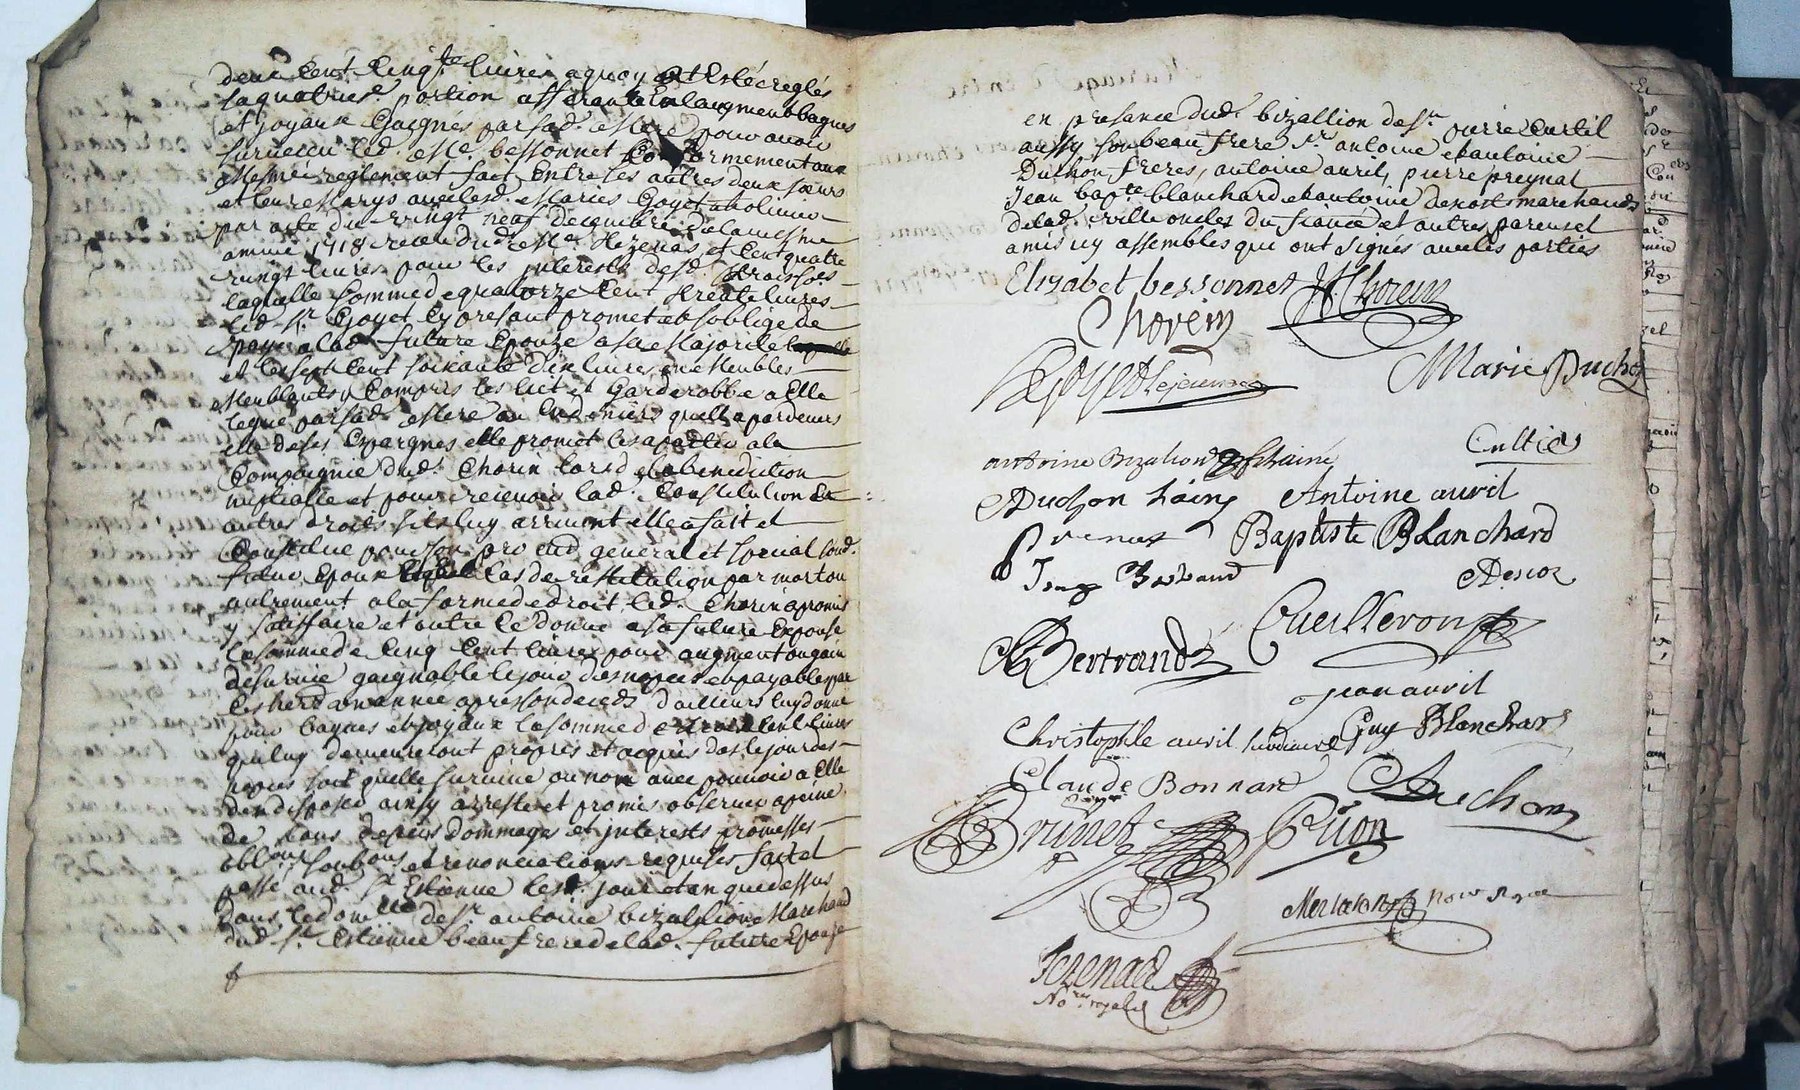 deux cent cinq.te livres a quoy ont esté reglés
la quatrie.e portion afferante en laugment bagues
et joyaux Gaignés par lad. Mere pour avoir
survescu led. Me. bessonnet conformement aux
mesme reglement fait entre les autres deux sœurs
et leurs Marys avec lesd. Mariés Goyet
par acte du vingt neuf décembre de la mesme
année 1718 receu dud. Me. Tezenas et cent quatre
vingt livres pour les interests desd.
laquelle somme de quatorze cent trente livres
led. Sr. Goyet cy present promet et s'oblige de
payer a lad. future Epouze a sa Majorité
et les sept cent soixante dix livres en Meubles
Meublants y compris les lict et Garderobbe a Elle
legué par sad. Mere ou en deniers quelle a par devers
elle de ses Epargnes elle promet les aporter a la
Compagnie dud. Chorin lors de la benediction
nuptialle et pour recevoir lad. Constitution et
autres droits sils luy arrivent elle a fait et
Constitué pour son proc.eur général et special sond.
futur Epoux cas de restitution par mort ou
autrement a la forme de droit led. Chorin a promis
y satisfaire et outre ce donne a sa future Expouse
la somme de cinq cent livres pour augment ou gain
de survie gaignable le jour des nopces et payable par
ses her. une année apres son deceds d'ailleurs luy donne
pour bagues et joyaux la somme de trois cent livres
qui luy demeureront propres et acquis des le jour des
nopces soit quelle survive ou non avec pouvoir a Elle
d'en disposer ainsy arresté et promis observer a peine
de tous depens dommages et interests promesses
obl.ons soub.ons et renonciations requises fait et
passé aud. St. Estienne les. jour et an que dessus
dans le domicille de Sr. antoine bizallion Marchand
dud. St. Estienne beaufrere de lad. future Epouse
en presance dud. bizallion de Sr. pierre Curtil
aussy son beau frere Sr. antoine et antoine
Duchon freres, antoine avril, pierre preynat
Jean bap.te blanchard et antoine Descots marchands
de lad. ville oncles du fiancé et autres parens et
amis icy assemblés qui ont signés avec les parties
Elisabet bessonnet JJ Chorein
Chorein
Goyet Lejeune
Marie Duchon
antoine Bizalion
Cultier
ADuchon l'ainé Antoine avril
Preinat Baptiste BLanchard
Bertrand Descoz
Cueilleron
Bertrand
jean avril
Christophle avril Guy Blanchard
Claude Bonnard ADuchon
Brunet Prion
No.re royal
Tezenas
No.re royal